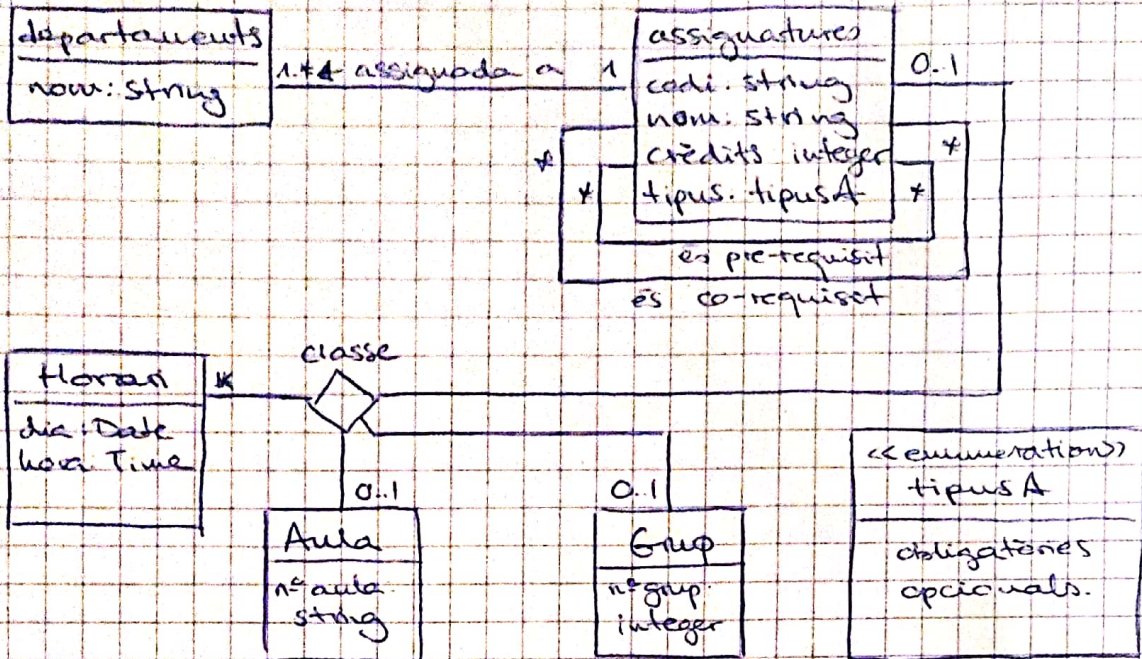 departaments
nom: String
assignada a 1
assignatures
codi. string
nom: string
crèdits integer
tipus. tipusA
0..1
*
*
*
*
es pre-requisit
és co-requisit
classe
Horari
*
dia: Date
hora Time
0..1
Aula
nº aula.
string
0..1
Grup
nº grup.
integer
<<enumeration>>
tipus A
obligatòries
opcionals.